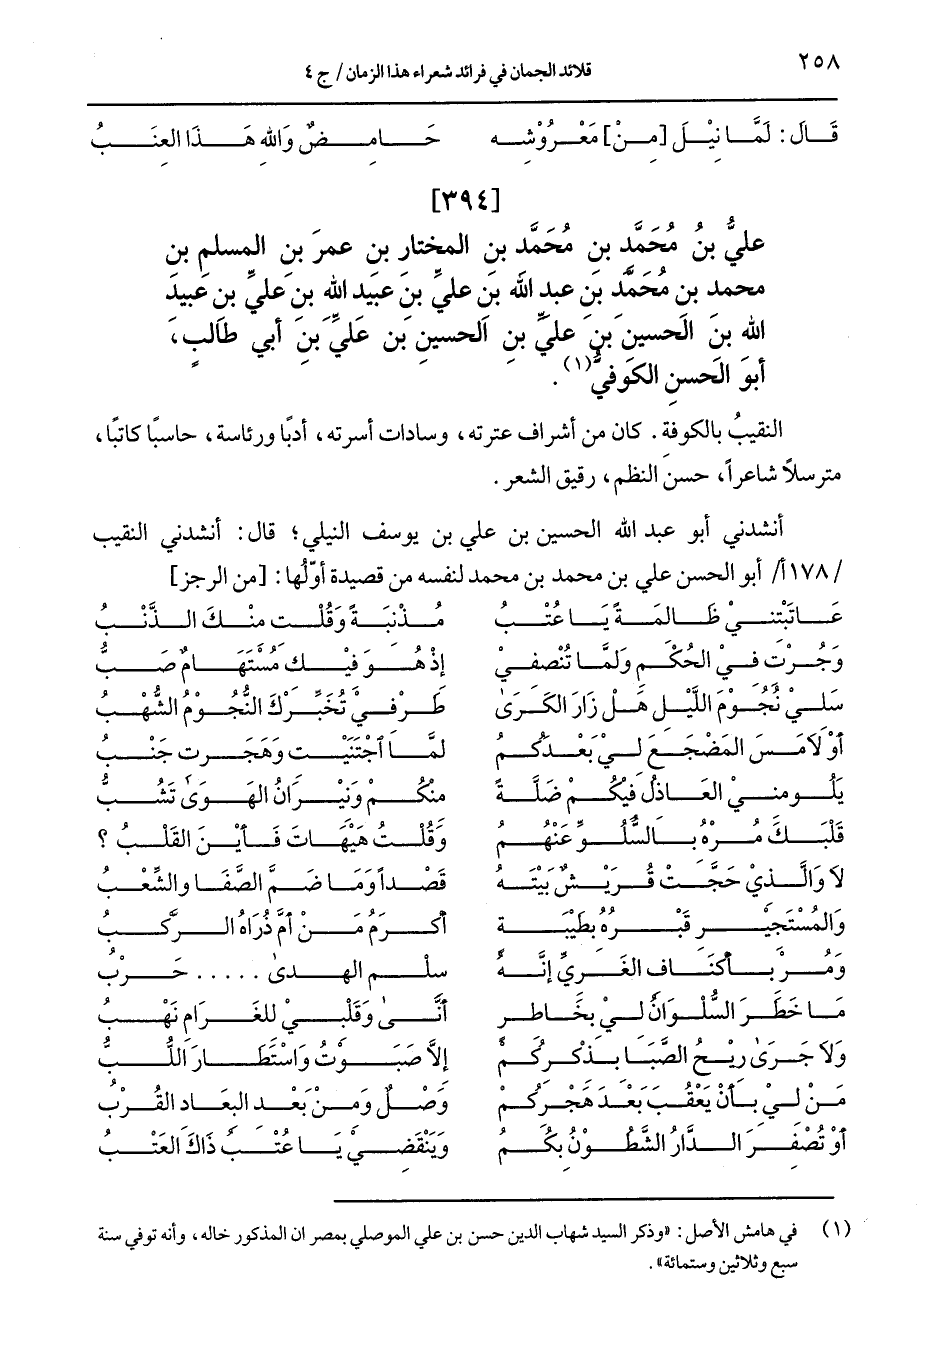 ٢٥٨
قلائد الجمان في فرائد شعراء هذا الزمان / ج ٤
قَالَ: لَمَّا نِيْلَ [مِنْ] مَعْرُوْشِهِ حَامِضٌ وَاللهِ هَذَا العِنَبُ
[٣٩٤]
عليُّ بنُ مُحَمَّدِ بن مُحَمَّدِ بن المختار بن عمرَ بن المسلم بن
محمد بن مُحَمَّدِ بن عبد الله بن عليِّ بن عبيد الله بن عليِّ بن عبيد
الله بن الحسين بن عليِّ بن الحسين بن عَليِّ بن أبي طالبٍ،
أبو الحسنِ الكوفيُّ(١).
النقيبُ بالكوفة. كان من أشراف عترته، وسادات أسرته، أدبًا ورئاسة، حاسبًا كاتبًا،
مترسلاً شاعراً، حسن النظم، رقيق الشعر.
أنشدني أبو عبد الله الحسين بن علي بن يوسف النيلي؛ قال: أنشدني النقيب
/١٧٨أ/ أبو الحسن علي بن محمد بن محمد لنفسه من قصيدة أوّلها: [من الرجز]
عَاتَبْتِنِيْ ظَالِمَةً يَا عُتْبُ مُذْنِبَةً وَقُلْتِ مِنْكَ الذَّنْبُ
وَجُرْتِ فِيْ الحُكْمِ ولَمَّا تُنْصِفِيْ إذْ هُوَ فِيْكِ مُسْتَهَامٌ صَبُّ
سَلِيْ نُجُوْمَ اللَّيْلِ هَلْ زَارَ الكَرَى طَرْفِيْ تُخَبِّرْكِ النُّجُوْمُ الشُّهْبُ
أوْ لاَمَسَ المَضْجَعَ لِيْ بَعْدَكُمُ لَمَّا اجْتَنَيْتِ وَهَجَرْتِ جَنْبُ
يَلُومُنِيْ العَاذِلُ فِيْكُمْ ضَلَّةً مِنْكُمْ وَنِيْرَانُ الهَوَىٰ تَشُبُّ
قَلْبَكَ مُرْهُ بِالسُّلُوِّ عَنْهُمُ وَقُلْتُ هَيْهَاتَ فَأيْنَ القَلْبُ ؟
لاَ وَالَّذِيْ حَجَّتْ قُرَيْشٌ بَيْتَهُ قَصْداً وَمَا ضَمَّ الصَّفَا والشِّعْبُ
وَالمُسْتَجِيْرِ قَبْرُهُ بِطَيْبَةٍ أكْرَمُ مَنْ أمَّ ذُرَاهُ الرَّكْبُ
وَمُرْ بِأكْنَافِ الغَرِيِّ إنَّهُ سِلْمُ الهُدىٰ ...... حَرْبُ
مَا خَطَرَ السُّلْوَانُ لِيْ بِخَاطِرٍ أنَّىٰ وَقَلْبِيْ لِلغَرَامِ نَهْبُ
وَلاَ جَرَىٰ رِيْحُ الصَّبَا بِذِكْرِكُمْ إلاَّ صَبَوْتُ وَاسْتَطَارَ اللُّبُّ
مَنْ لِيْ بِأنْ يَعْقُبَ بَعْدَ هَجْرِكُمْ وَصْلٌ وَمِنْ بَعْدِ البِعَادِ القُرْبُ
أوْ تُصْفِرَ الدَّارُ الشَّطُوْنُ بِكُمُ وَيَنْقَضِيْ يَا عُتْبُ ذَاكَ العَتْبُ
(١) في هامش الأصل: «وذكر السيد شهاب الدين حسن بن علي الموصلي بمصر ان المذكور خاله، وأنه توفي سنة
سبع وثلاثين وستمائة».